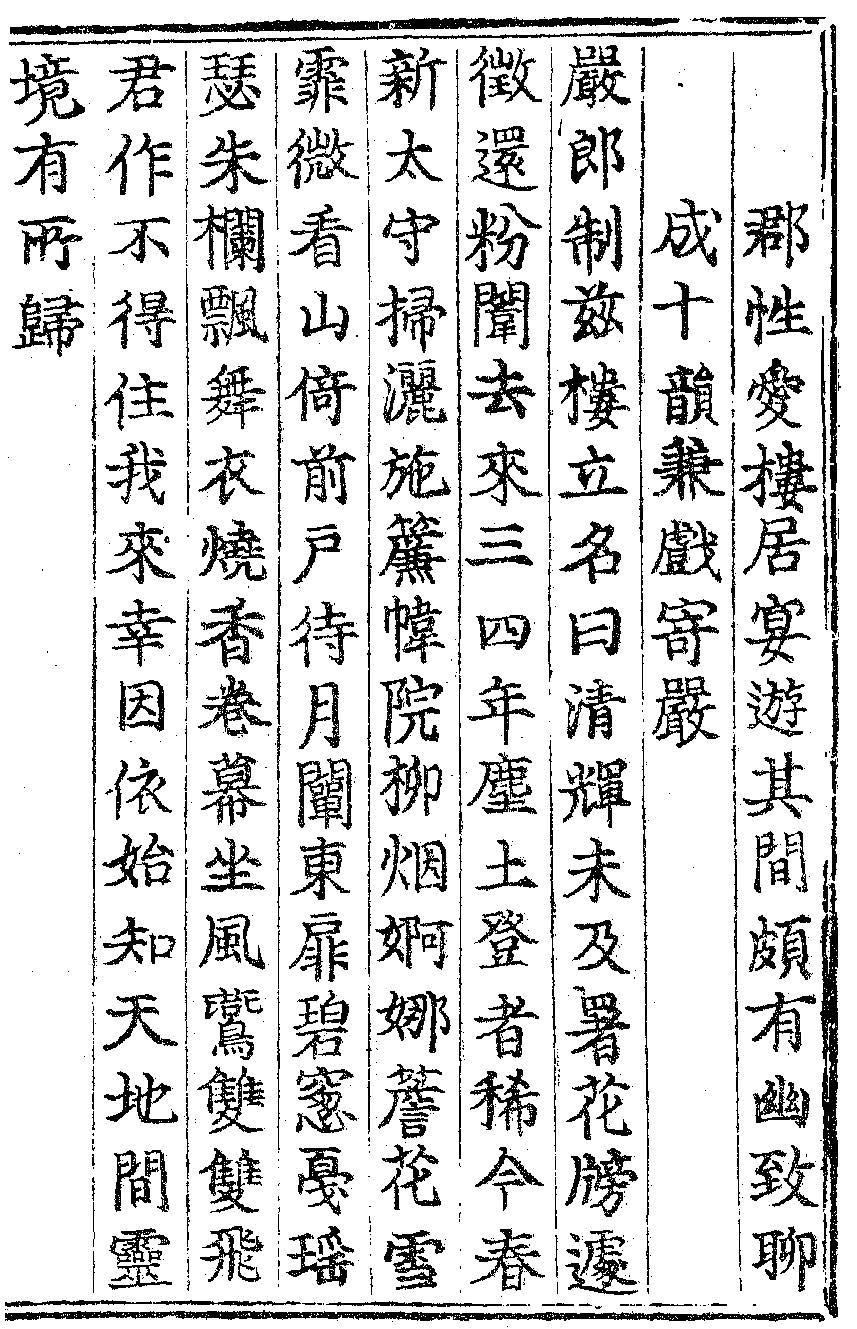 郡性愛樓居宴遊其間頗有幽致聊
成十韻兼戲寄嚴
嚴郎制兹樓立名曰清輝未及署花牓遽
徵還粉闈去來三四年塵土登者稀今春
新太守掃灑施簾幃院柳烟婀娜簷花雪
霏微看山倚前戸待月闡東扉碧窻戞瑶
瑟朱欄飄舞衣燒香卷幕坐風鷰雙雙飛
君作不得住我來幸因依始知天地間靈
境有所歸